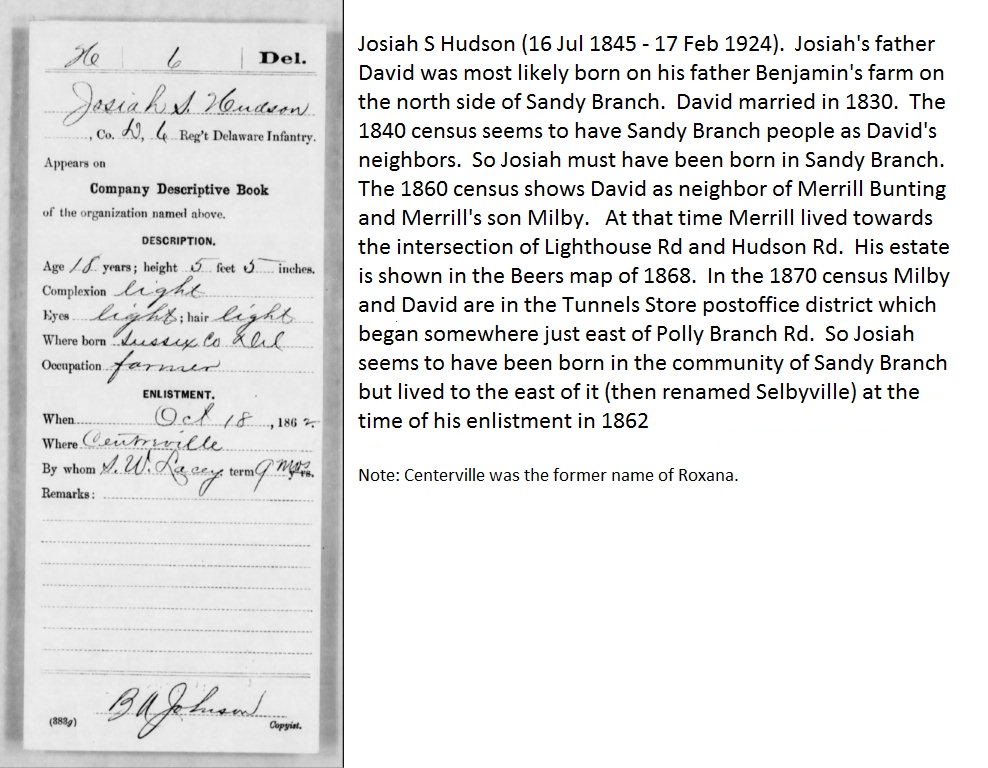 H | 6 | Del.
Josiah S. Hudson
, Co. D, 6 Reg't Delaware Infantry.
Appears on
Company Descriptive Book
of the organization named above.
DESCRIPTION.
Age 18 years; height 5 feet 5 inches.
Complexion light
Eyes light; hair light
Where born Sussex Co Del
Occupation farmer
ENLISTMENT.
When Oct 18, 1862
Where Centerville
By whom S. W. Lacey term 9 mos yrs.
Remarks:
B A Johnson
(383g) Copyist.
Josiah S Hudson (16 Jul 1845 - 17 Feb 1924). Josiah's father
David was most likely born on his father Benjamin's farm on
the north side of Sandy Branch. David married in 1830. The
1840 census seems to have Sandy Branch people as David's
neighbors. So Josiah must have been born in Sandy Branch.
The 1860 census shows David as neighbor of Merrill Bunting
and Merrill's son Milby. At that time Merrill lived towards
the intersection of Lighthouse Rd and Hudson Rd. His estate
is shown in the Beers map of 1868. In the 1870 census Milby
and David are in the Tunnels Store postoffice district which
began somewhere just east of Polly Branch Rd. So Josiah
seems to have been born in the community of Sandy Branch
but lived to the east of it (then renamed Selbyville) at the
time of his enlistment in 1862
Note: Centerville was the former name of Roxana.